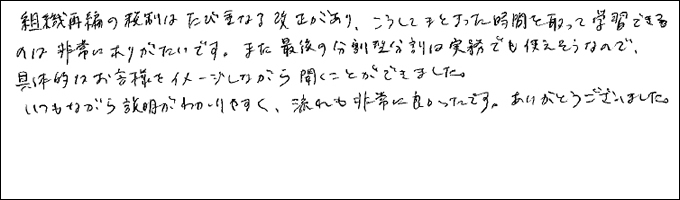 組織再編の税制はたび重なる改正があり、こうしてまとまった時間を取って学習できる
のは非常にありがたいです。また最後の分割型分割は実務でも使えそうなので、
具体的なお客様をイメージしながら聞くことができました。
いつもながら説明がわかりやすく、流れも非常に良かったです。ありがとうございました。